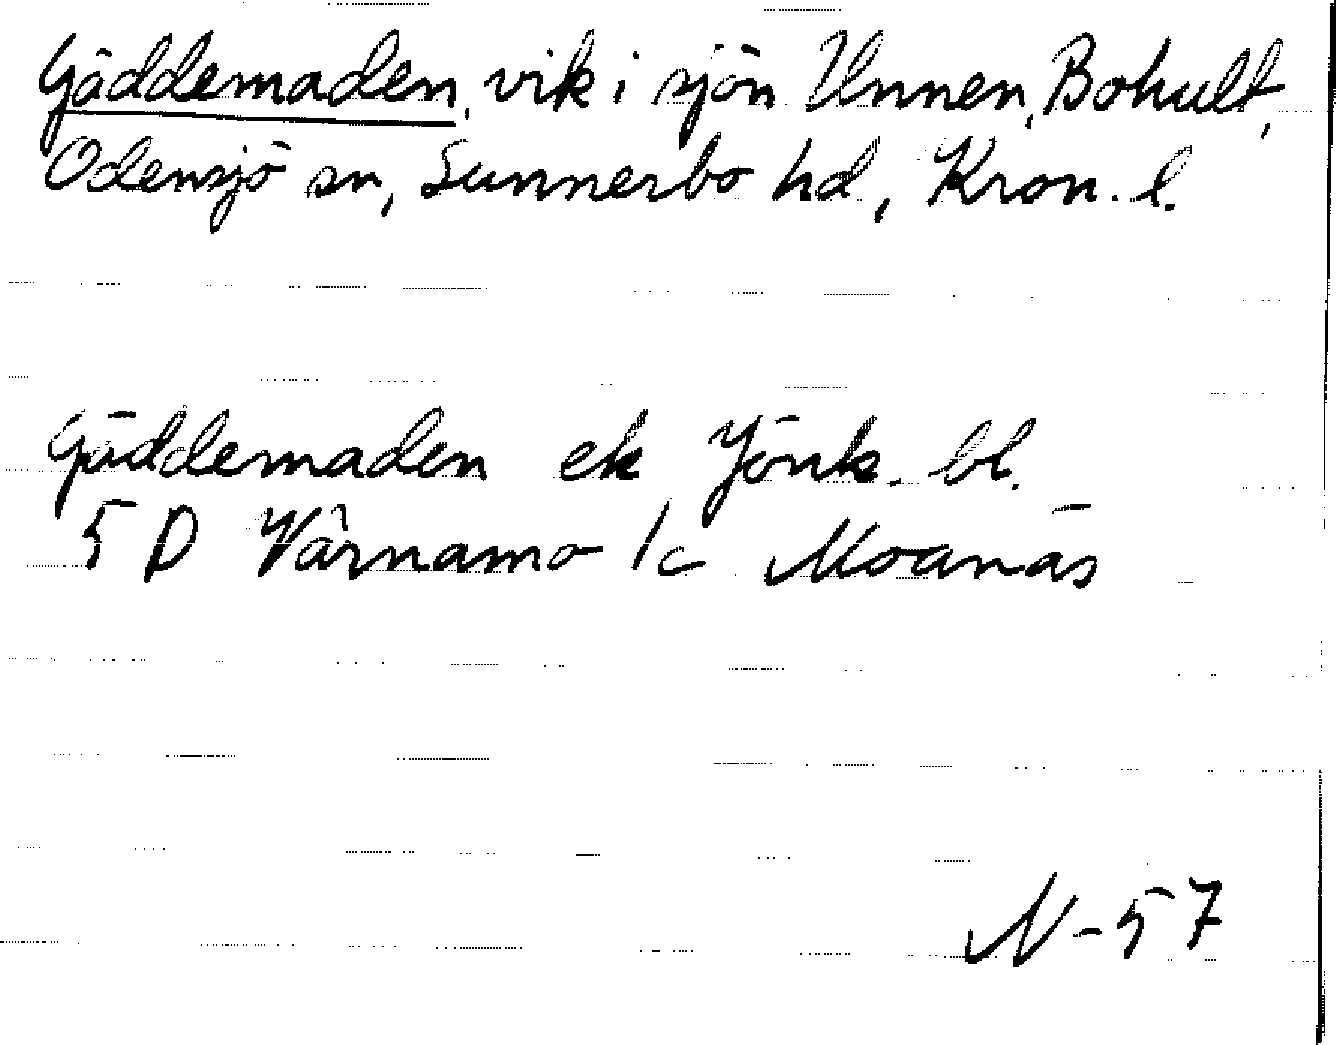 Gäddemaden, vik i sjön Unnen, Bohult,
Odensjö sn, Sunnerbo hd, Kron. l.
Gäddemaden ek Jönk. bl.
5 D Värnamo 1c Moanäs
N-57